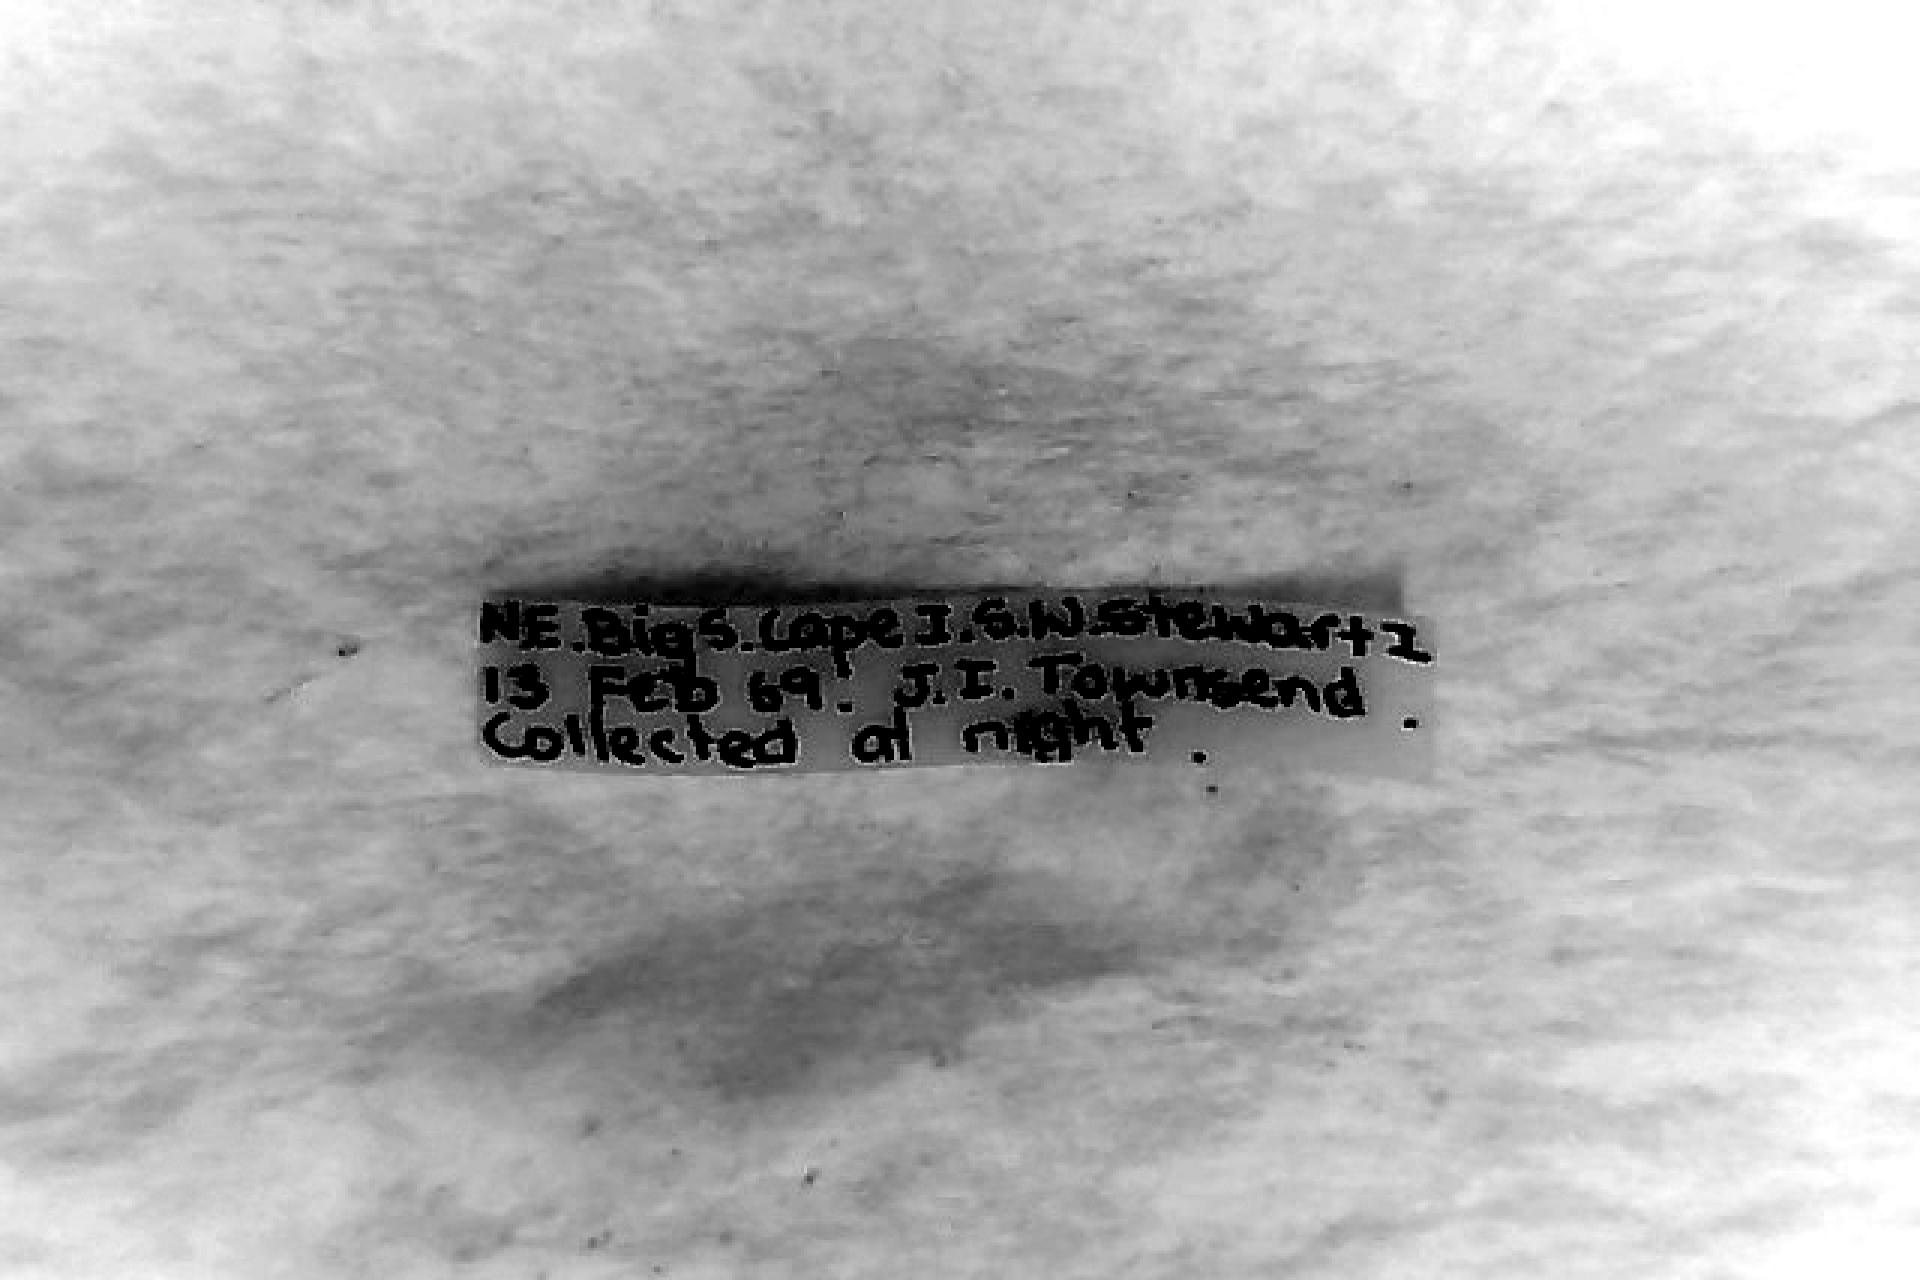 NE.Big S.Cape I.S.W.Stewart I
13 Feb 69. J.I. Townsend.
Collected at night.